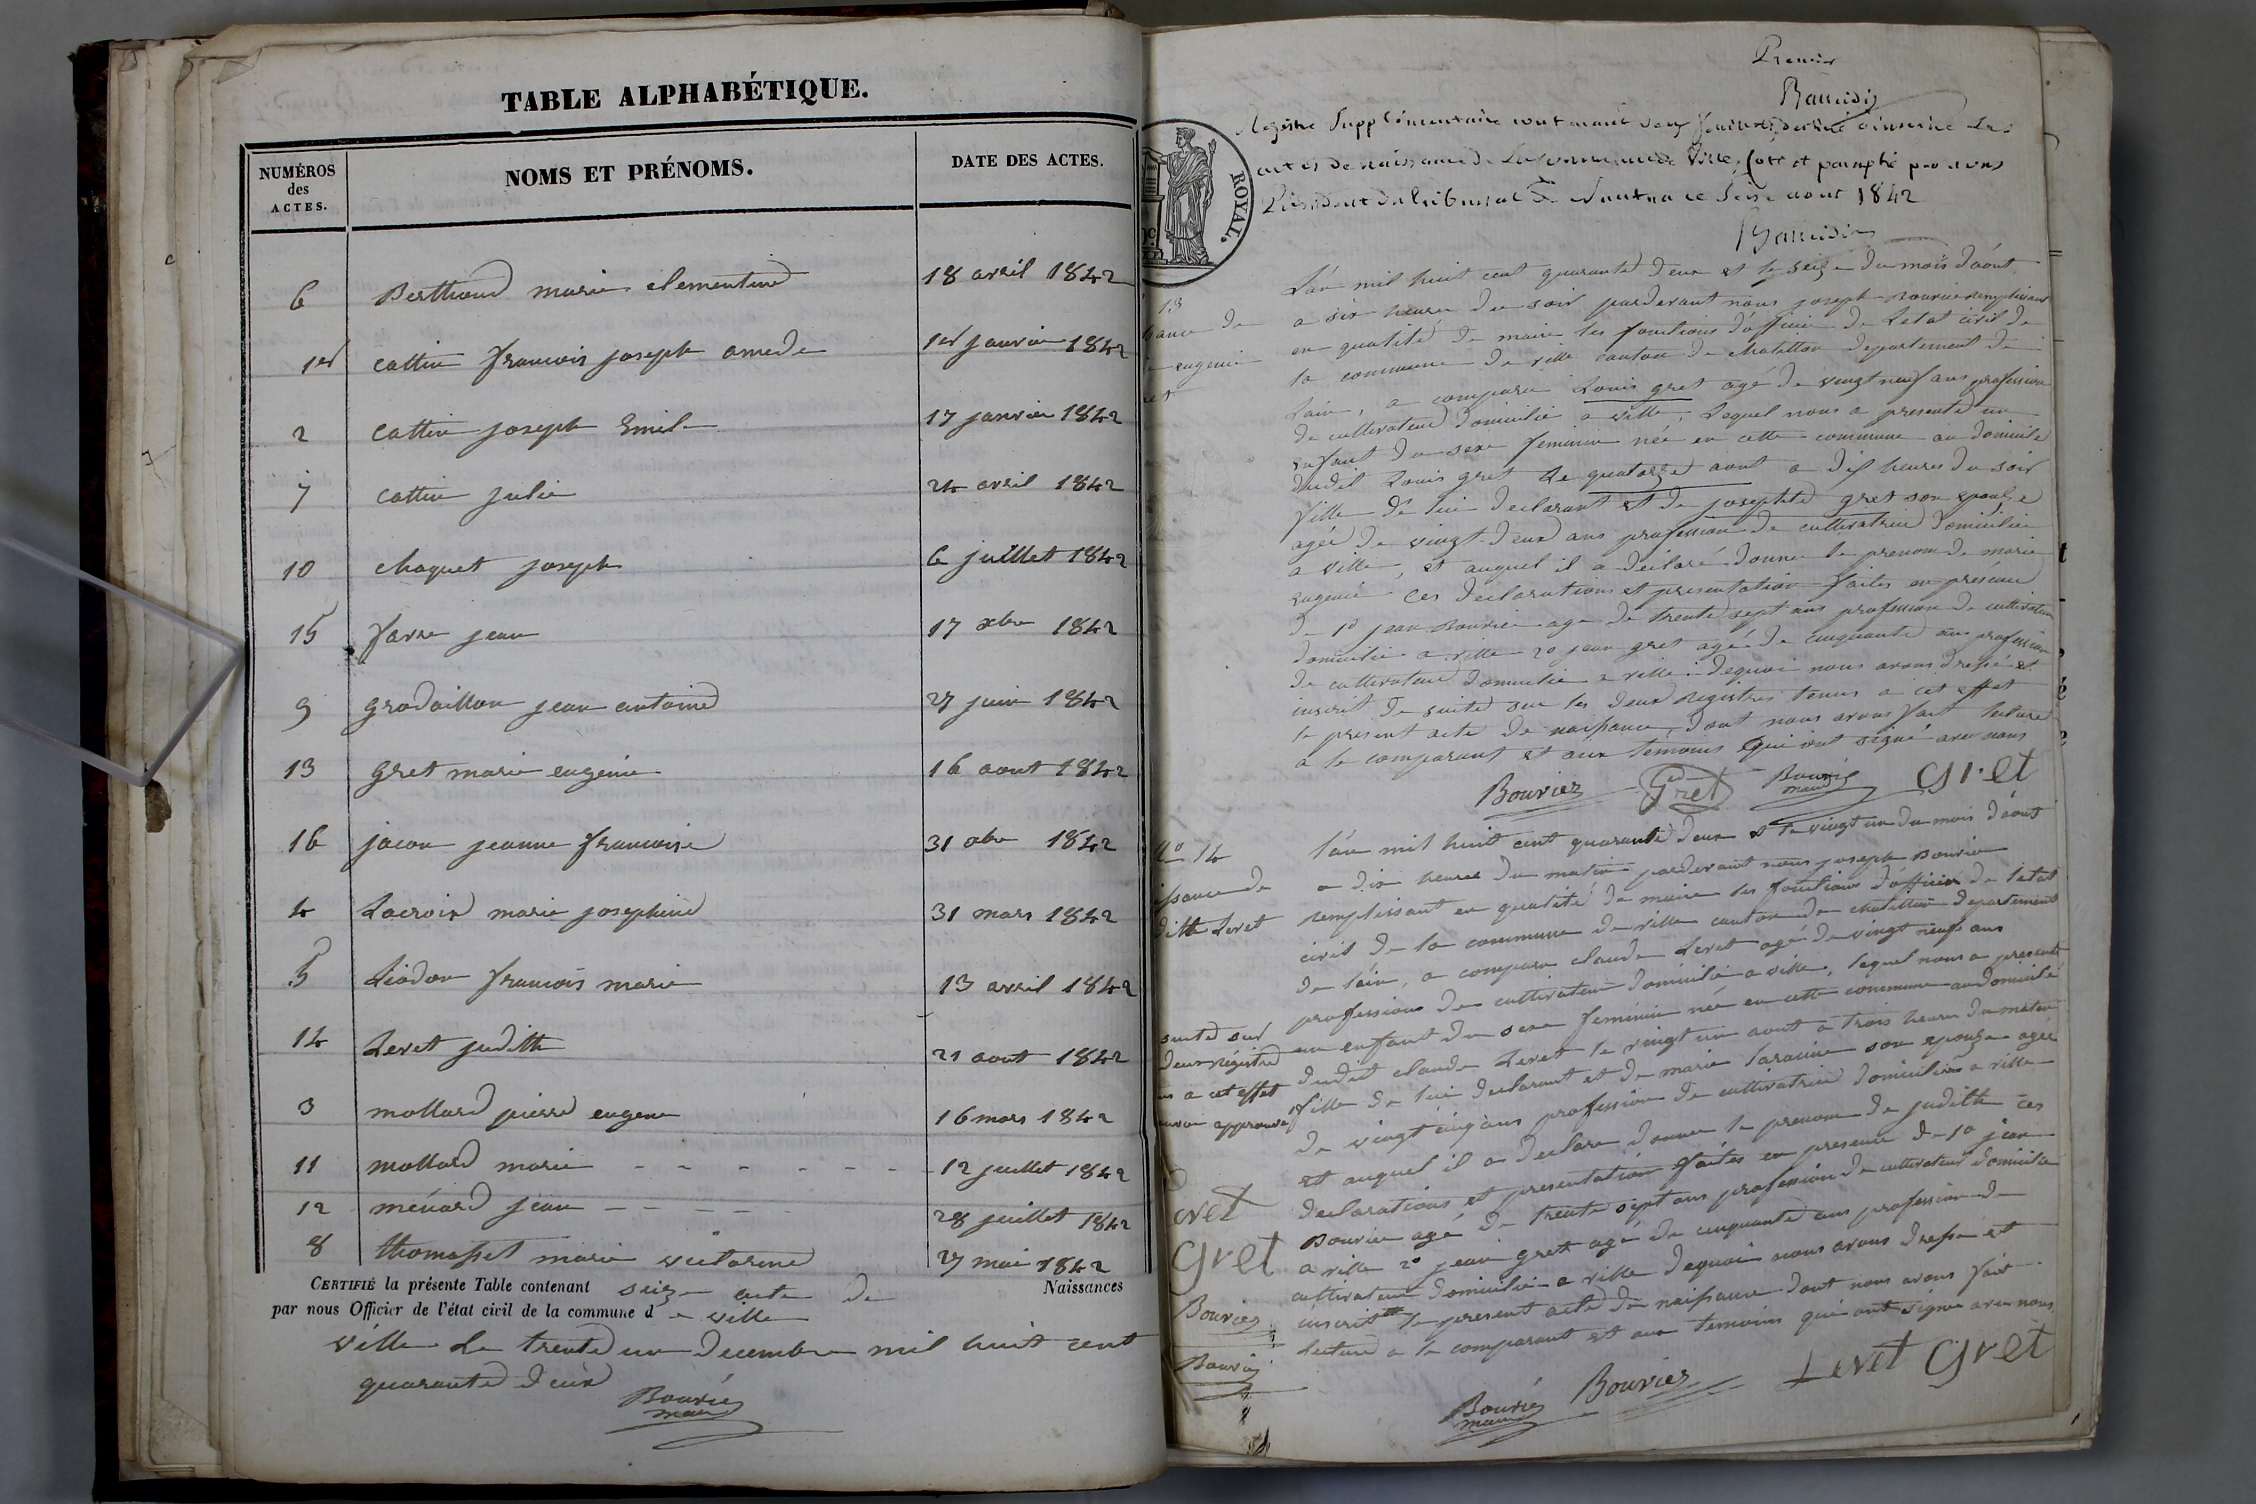 TABLE ALPHABÉTIQUE.
NUMÉROS des ACTES. NOMS ET PRÉNOMS. DATE DES ACTES.
6 Berthoud marie clementine 18 avril 1842
1er cattin francois joseph amede 1er janvier 1842
2 cattin joseph Emile 17 janvier 1842
7 cattin julie 24 avril 1842
10 chaquet joseph 6 juillet 1842
15 favre jean 17 xbre 1842
9 grodaillon jean antoine 27 juin 1842
13 gret marie eugenie 16 aout 1842
16 jacon jeanne francoise 31 xbre 1842
4 Lacroix marie josephine 31 mars 1842
5 Liodon francois marie 13 avril 1842
14 Levet judith 21 aout 1842
3 mollard pierre eugene 16 mars 1842
11 mollard marie - - - - - - 12 juillet 1842
12 ménard jean - - - - - 28 juillet 1842
8 thomasset marie victorine 27 mai 1842
CERTIFIÉ la présente Table contenant seize acte de Naissances
par nous Officier de l'état civil de la commune de ville
ville le trente un Decembre mil huit cent
quarante deux
Bouvié
maire
Premier
Baudin
ROYAL.
Registre Supplémentaire contenant deux feuillets destiné à inscrire les
actes de naissance de La commune de Ville, Coté et paraphé par nous
Président du tribunal de Nantua ce Seize aout 1842
Baudin
13
sance de
eugenie
et
L'an mil huit cent quarante deux et le seize du mois d'août
a six heure du soir pardevant nous joseph Bouvier remplissant
en qualité de maire les fonctions d'officier de Létat civil de
la commune de ville canton de chatillon departement de
Lain, a comparu Louis gret agé de vingt neuf ans profession
de cultivateur domicilié a ville, Lequel nous a presenté un
enfant du sexe feminin née en cette commune au domicile
dudit Louis gret Le quatorze aout a dix heures du soir
fille de lui declarant et de josephte gret son epouse
agée de vingt deux ans profession de cultivatrice domiciliée
a ville, et auquel il a déclaré donner le prenom de marie
eugenie ces declarations et presentation faites en présence
de 1o jean Bouvier age de trente sept ans profession de cultivateur
domicilié a ville 2o jean gret agé de cinquante ans profession
de cultivateur domicilié a ville dequoi nous avons dressé et
inscrit de suite sur les deux registres tenus a cet effet
le present acte de naissance, dont nous avons fait lecture
a le comparant et aux temoins qui ont signé avec nous
Bouvier Gret Bouvié maire gret
No 14
issance de
dith Levet
l'an mil huit cent quarante deux et le vingt un du mois d'août
a dix heures du matin pardevant nous joseph Bouvier
remplissant en qualité de maire les fonctions d'officier de l'état
civil de la commune de ville canton de chatillon departement
de lain, a comparu claude Levet agé de vingt neuf ans
profession de cultivateur domicilié a ville, lequel nous a presenté
un enfant du sexe feminin née en cette commune au domicile
dudit claude Levet le vingt un aout a trois heures du matin
fille de lui declarant et de marie son epouse agée
de vingt cinq ans profession de cultivatrice domiciliée a ville
et auquel il a declare donner le prenom de judith ces
declarations et presentation faites en presence de 1o jean
Bouvier agé de trente sept ans profession de cultivateur domicilié
a ville 2o jean gret agé de cinquante ans profession de
cultivateur domicilié a ville dequoi nous avons dresse et
inscrit le present acte de naissance dont nous avons fait
lecture a le comparant et aux temoins qui ont signe avec nous
suite sur
deux régistre
us a cet effet
approuvé
evet
gret
Bouvier
Bouvié
Bouvié maire Bouvier Levet gret